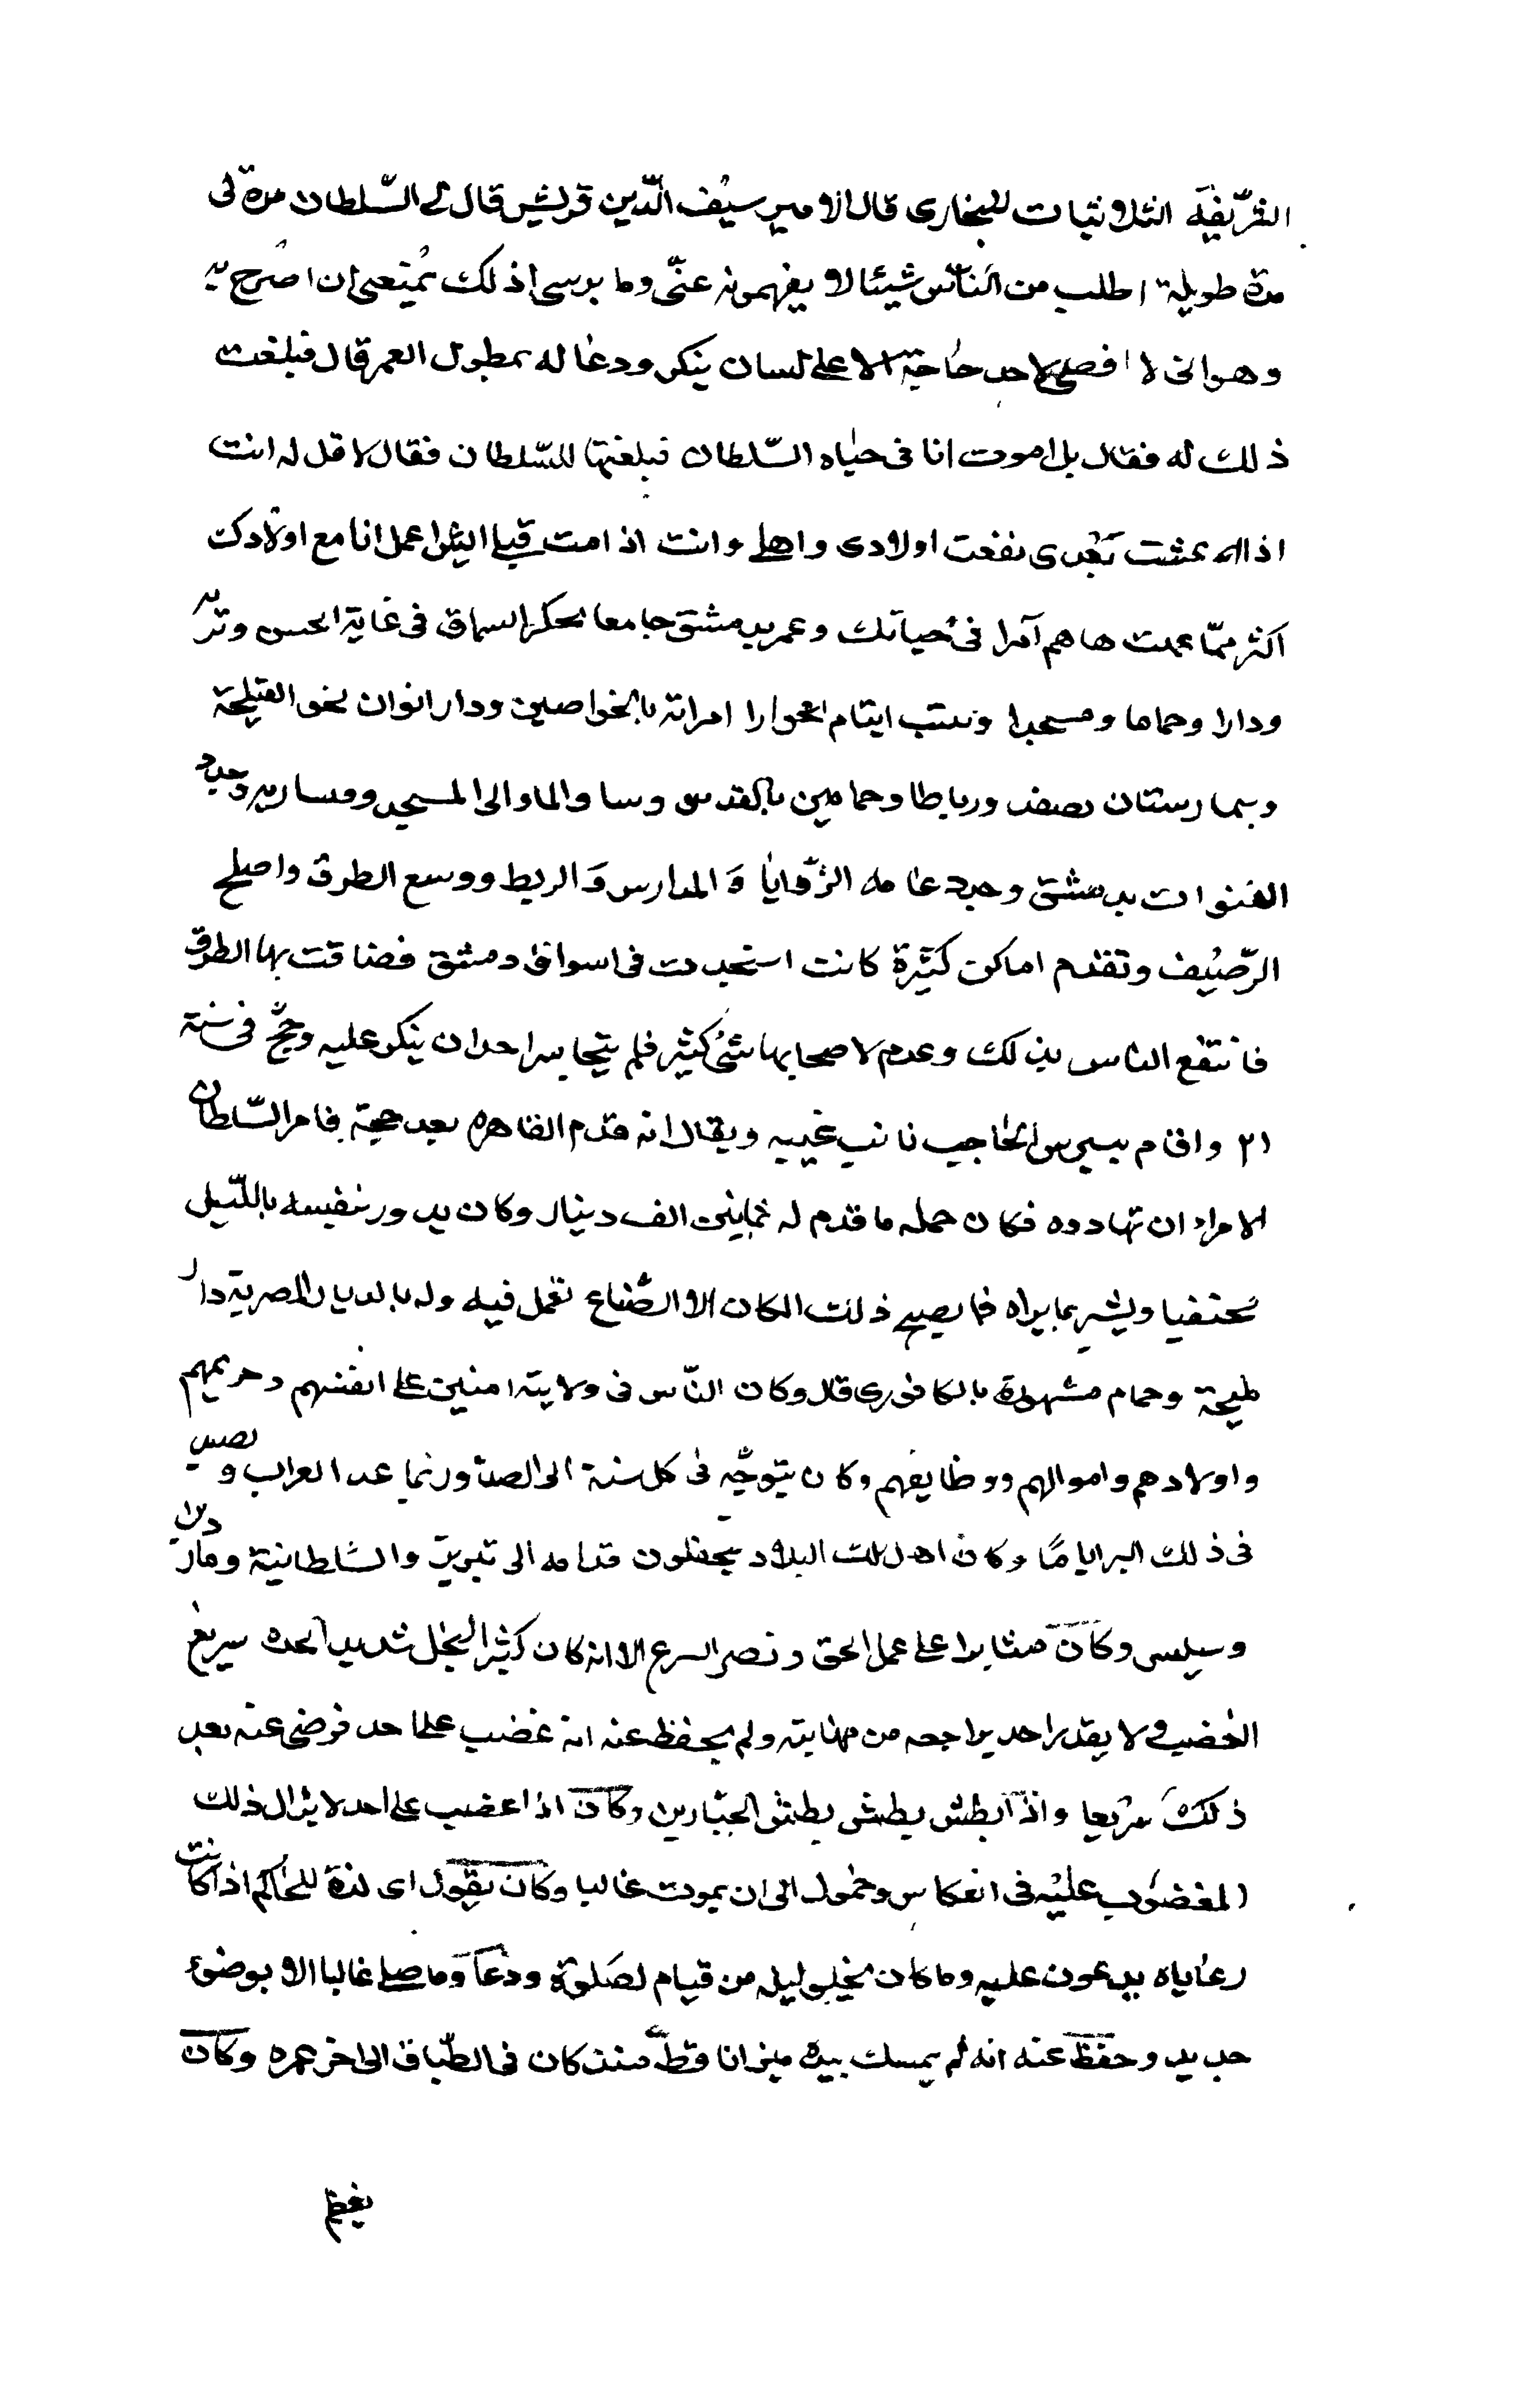 الشريفة الثلاثيات للبخارى قال الامير سيف الدّين قرلشى قال لى السّلطان مرة لى
مدة طويلة اطلب من النّاس شيئا لا يفهمونه عنّى وناموسى اذ لك يمنعنى ان اصرح به
وهوانى لا افصح لاحد حاجة الا على لسان ينكر ودعا له بطول العمر قال فبلغت
ذلك له فقال بل اموت انا فى حياه السّلطان فبلغتها للسّلطان فقال لا قل له انت
اذا عشت بعدى نفعت اولادى واهلى وانت اذا مت قبلى ايش اعمل انا مع اولادك
اكثر ممّا عملت هاهم امرا فى حياتك وعمر بدمشق جامعا بحكر السماق فى غاية الحسن وتربه
ودارا وحماما ومسجدا ومكتب ايتام بجوارا امراته بالخواصين ودارا نوان نحو القليجة
وبيمارستان بصفد ورباطا وحمامين بالقدس وساق الماء الى المسجد وقيساريه وجدد
القنوات بدمشق وجدد عامه الزّوايا والمدارس والربط ووسع الطرق واصلح
الرّصيف وتقدم اماكن كثيرة كانت استجدت فى اسواق دمشق فضاقت بها الطرق
فانتفع الناس بذلك وعدم لاصحابها شئ كثير فلم يتجاسر احدان ينكر عليه وحجّ فى سنة
٢١ واقام بيبرس الحاجب نائب غيبه ويقال انه قدم القاهره بعد حجة فامر السّلطان
الامراء ان تهادوه فكان جمله ما قدم له ثمانين الف دينار وكان يدور بنفسه باللّيل
مختفيا ويشير بما يراه فما يصبح ذلك المكان الا والصّناع تعمل فيه وله بالديار المصرية دار
مليحة وحمام مشهورة بالكافورى قال وكان النّاس فى ولايته امنين على انفسهم وحريمهم
واولادهم واموالهم ووظايفهم وكان يتوجّه فى كل سنة الى الصيد وربما عدا الفرات وتصيد
فى ذلك البر اياما وكان اهل تلك البلاد يجفلون قدامه الى تبريز والسّلطانية وماردين
وسيس وكان مثابرا على عمل الحق ونصر الشرع الا انه كان كثير التخيل شديد الحده سريع
الغضب ولا يقدر احد يراجعه من مهابته ولم يحفظ عنه انه غضب على احد فرضى عنه بعد
ذلك سريعا واذا بطش يطش بطش الجبّارين وكان اذا غضب على احد لا يزال ذلك
المغضوب عليه فى انعكاس وخمول الى ان يموت غالبا وكان يقول اى لذة للحاكم اذا كانت
رعاياه يدعون عليه وما كان يخلى ليله من قيام لصلوة ودعا وما صلى غالبا الا بوضوء
جديد وحفظ عنه انه لم يمسك بيده ميزانا قطّ منذ كان فى الطّباق الى اخر عمره وكان
يعظم